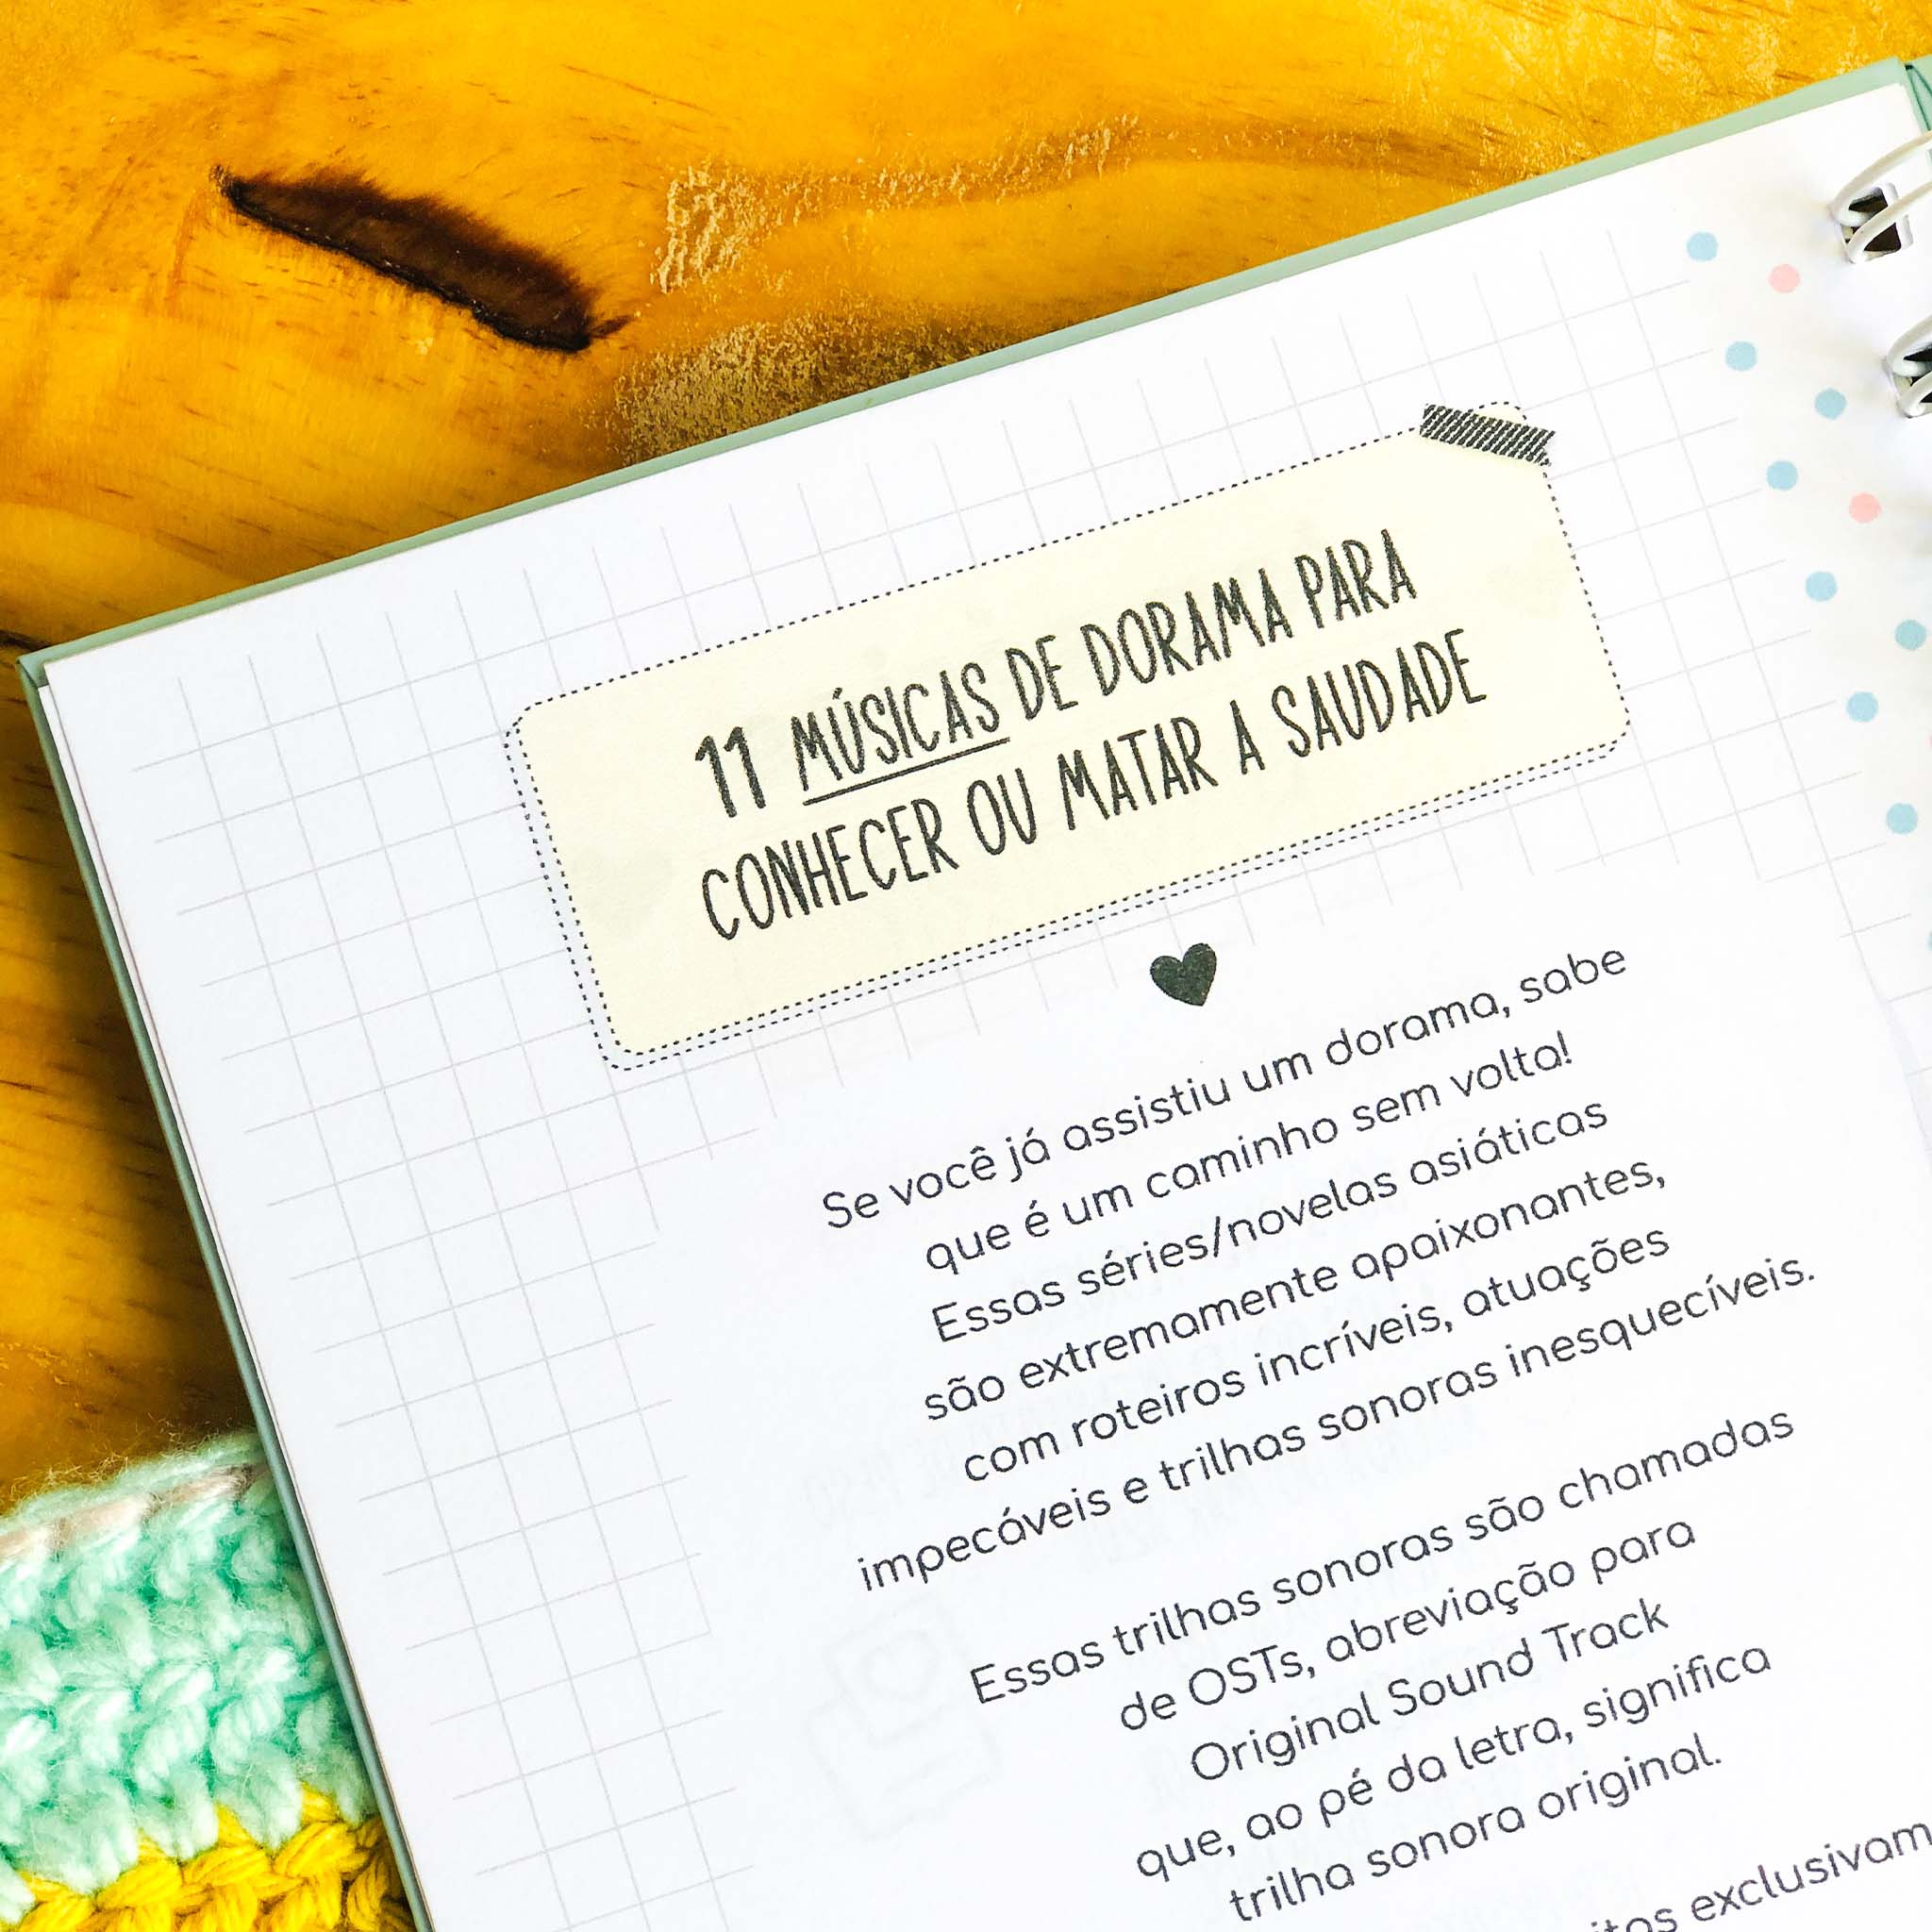 11 MÚSICAS DE DORAMA PARA
CONHECER OU MATAR A SAUDADE
Se você já assistiu um dorama, sabe
que é um caminho sem volta!
Essas séries/novelas asiáticas
são extremamente apaixonantes,
com roteiros incríveis, atuações
impecáveis e trilhas sonoras inesquecíveis.
Essas trilhas sonoras são chamadas
de OSTs, abreviação para
Original Sound Track
que, ao pé da letra, significa
trilha sonora original.